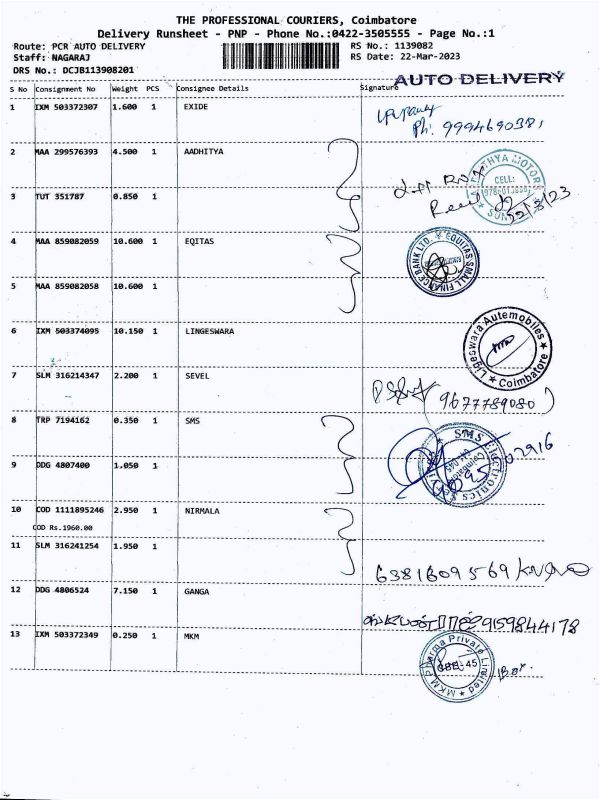 THE PROFESSIONAL COURIERS, Coimbatore
Delivery Runsheet - PNP - Phone No.:0422-3505555 - Page No.:1
Route: PCR AUTO DELIVERY
RS No.: 1139082
Staff: NAGARAJ
RS Date: 22-Mar-2023
DRS No.: DCJB113908201
AUTO DELIVERY
S No Consignment No Weight PCS Consignee Details Signature
1 IXM 503372307 1.600 1 EXIDE
Ph: 9994690381
2 MAA 299576393 4.500 1 AADHITYA
MOTORS
CELL:
3 TUT 351787 0.850 1
4 MAA 859082059 10.600 1 EQITAS
EQUITAS SMALL FINANCE BANK LTD.
5 MAA 859082058 10.600 1
6 IXM 503374095 10.150 1 LINGESWARA
Ligeswara Automobiles
Coimbatore
7 SLM 316214347 2.200 1 SEVEL
(9677789080)
8 TRP 7194162 0.350 1 SMS
SMS Electronics
Coimbatore
9 DDG 4807400 1.050 1
10 COD 1111895246 2.950 1 NIRMALA
COD Rs.1960.00
11 SLM 316241254 1.950 1
6381609569
12 DDG 4806524 7.150 1 GANGA
9159844178
13 IXM 503372349 0.250 1 MKM
MKM Pharma Private Limited
CBE-45